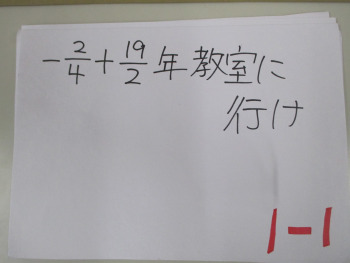 -2/4+19/2年教室に
行け
1-1